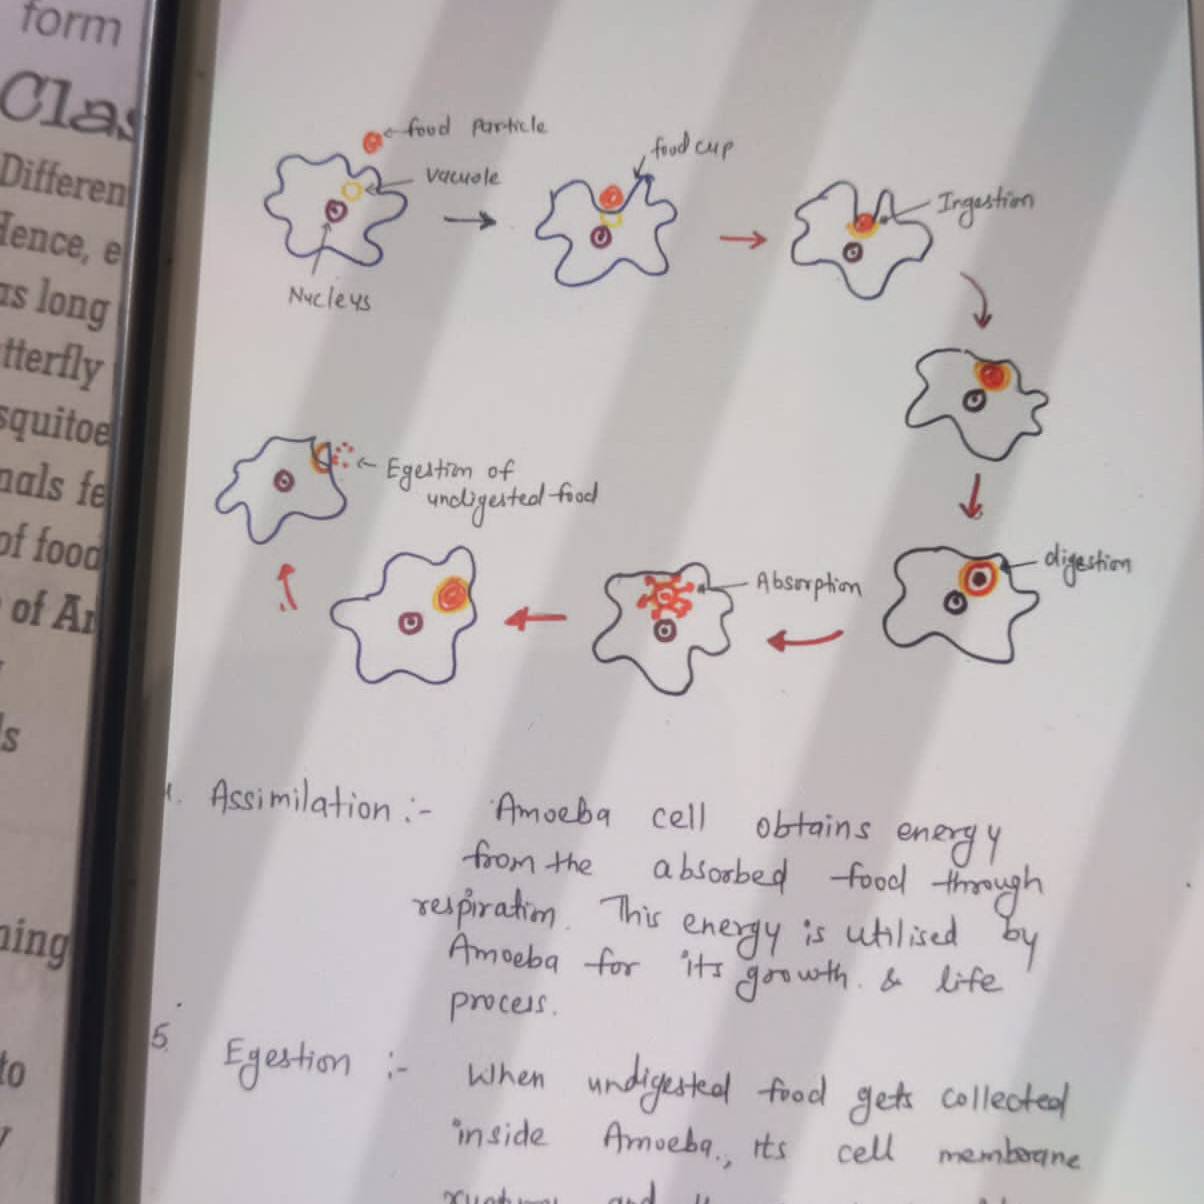 form
Differen
Hence, e
as long
tterfly
squitoe
nals fe
of food
of
ning
to
food particle
vacuole
Nucleys
food cup
Ingestion
digestion
Absorption
Egestion of
undigested food
Assimilation :- Amoeba cell obtains energy
from the absorbed food through
respiration. This energy is utilised by
Amoeba for its growth. & life
process.
5. Egestion :- When undigested food gets collected
inside Amoeba., its cell membrane
and